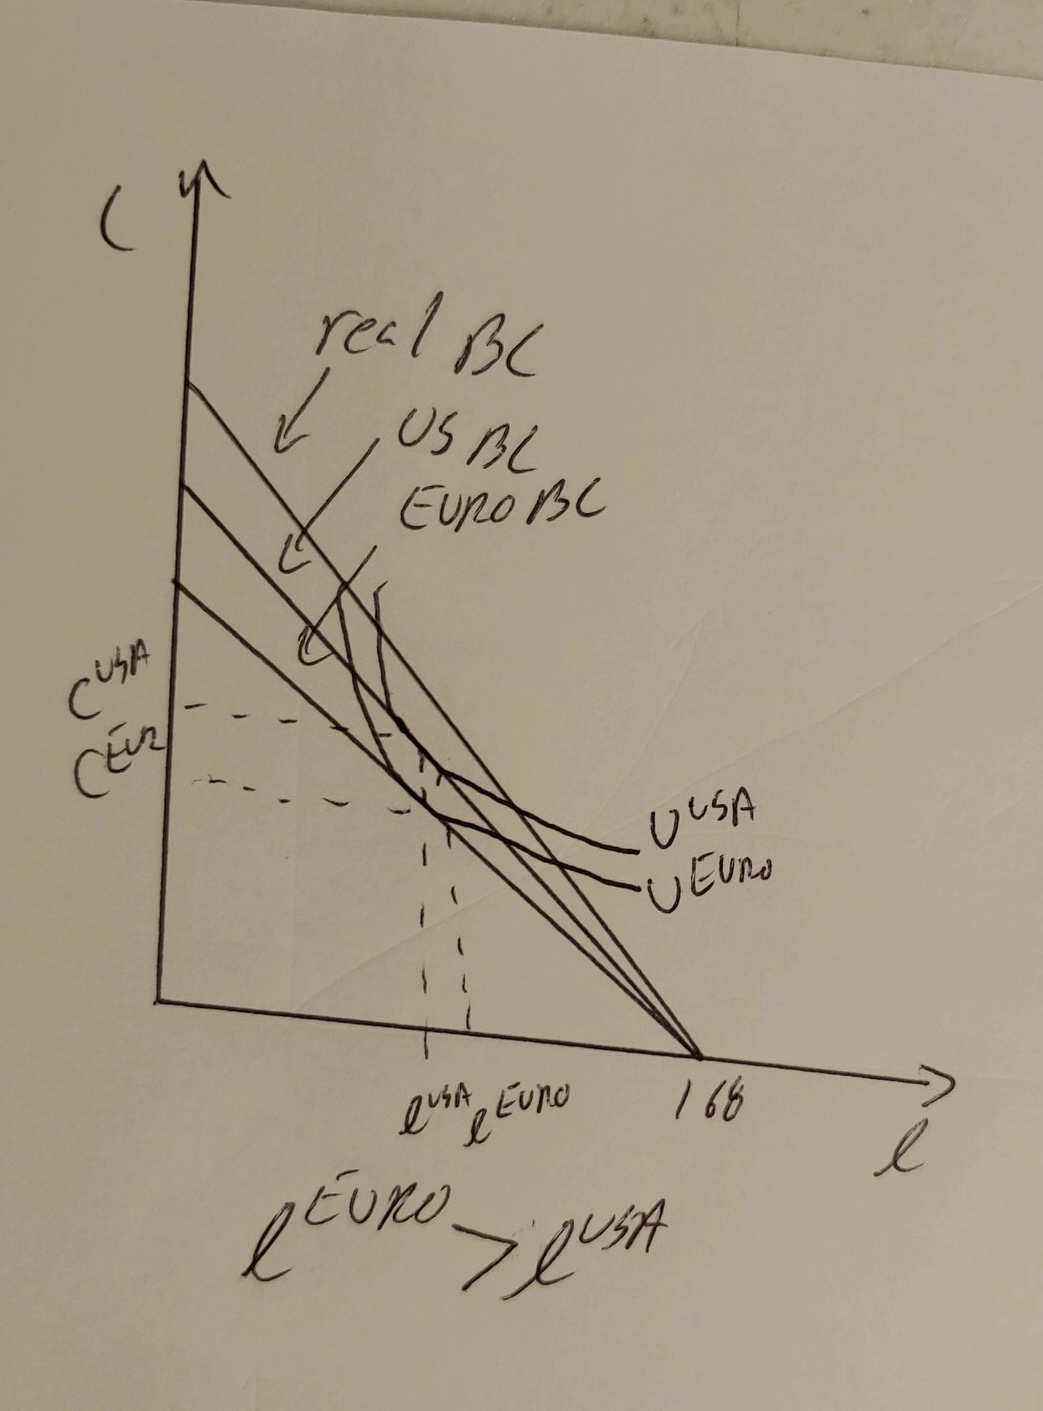 C
real BC
US BC
EURO BC
C^USA
C^EUR
U^USA
U^EURO
l^USA l^EURO
168
l
l^EURO > l^USA